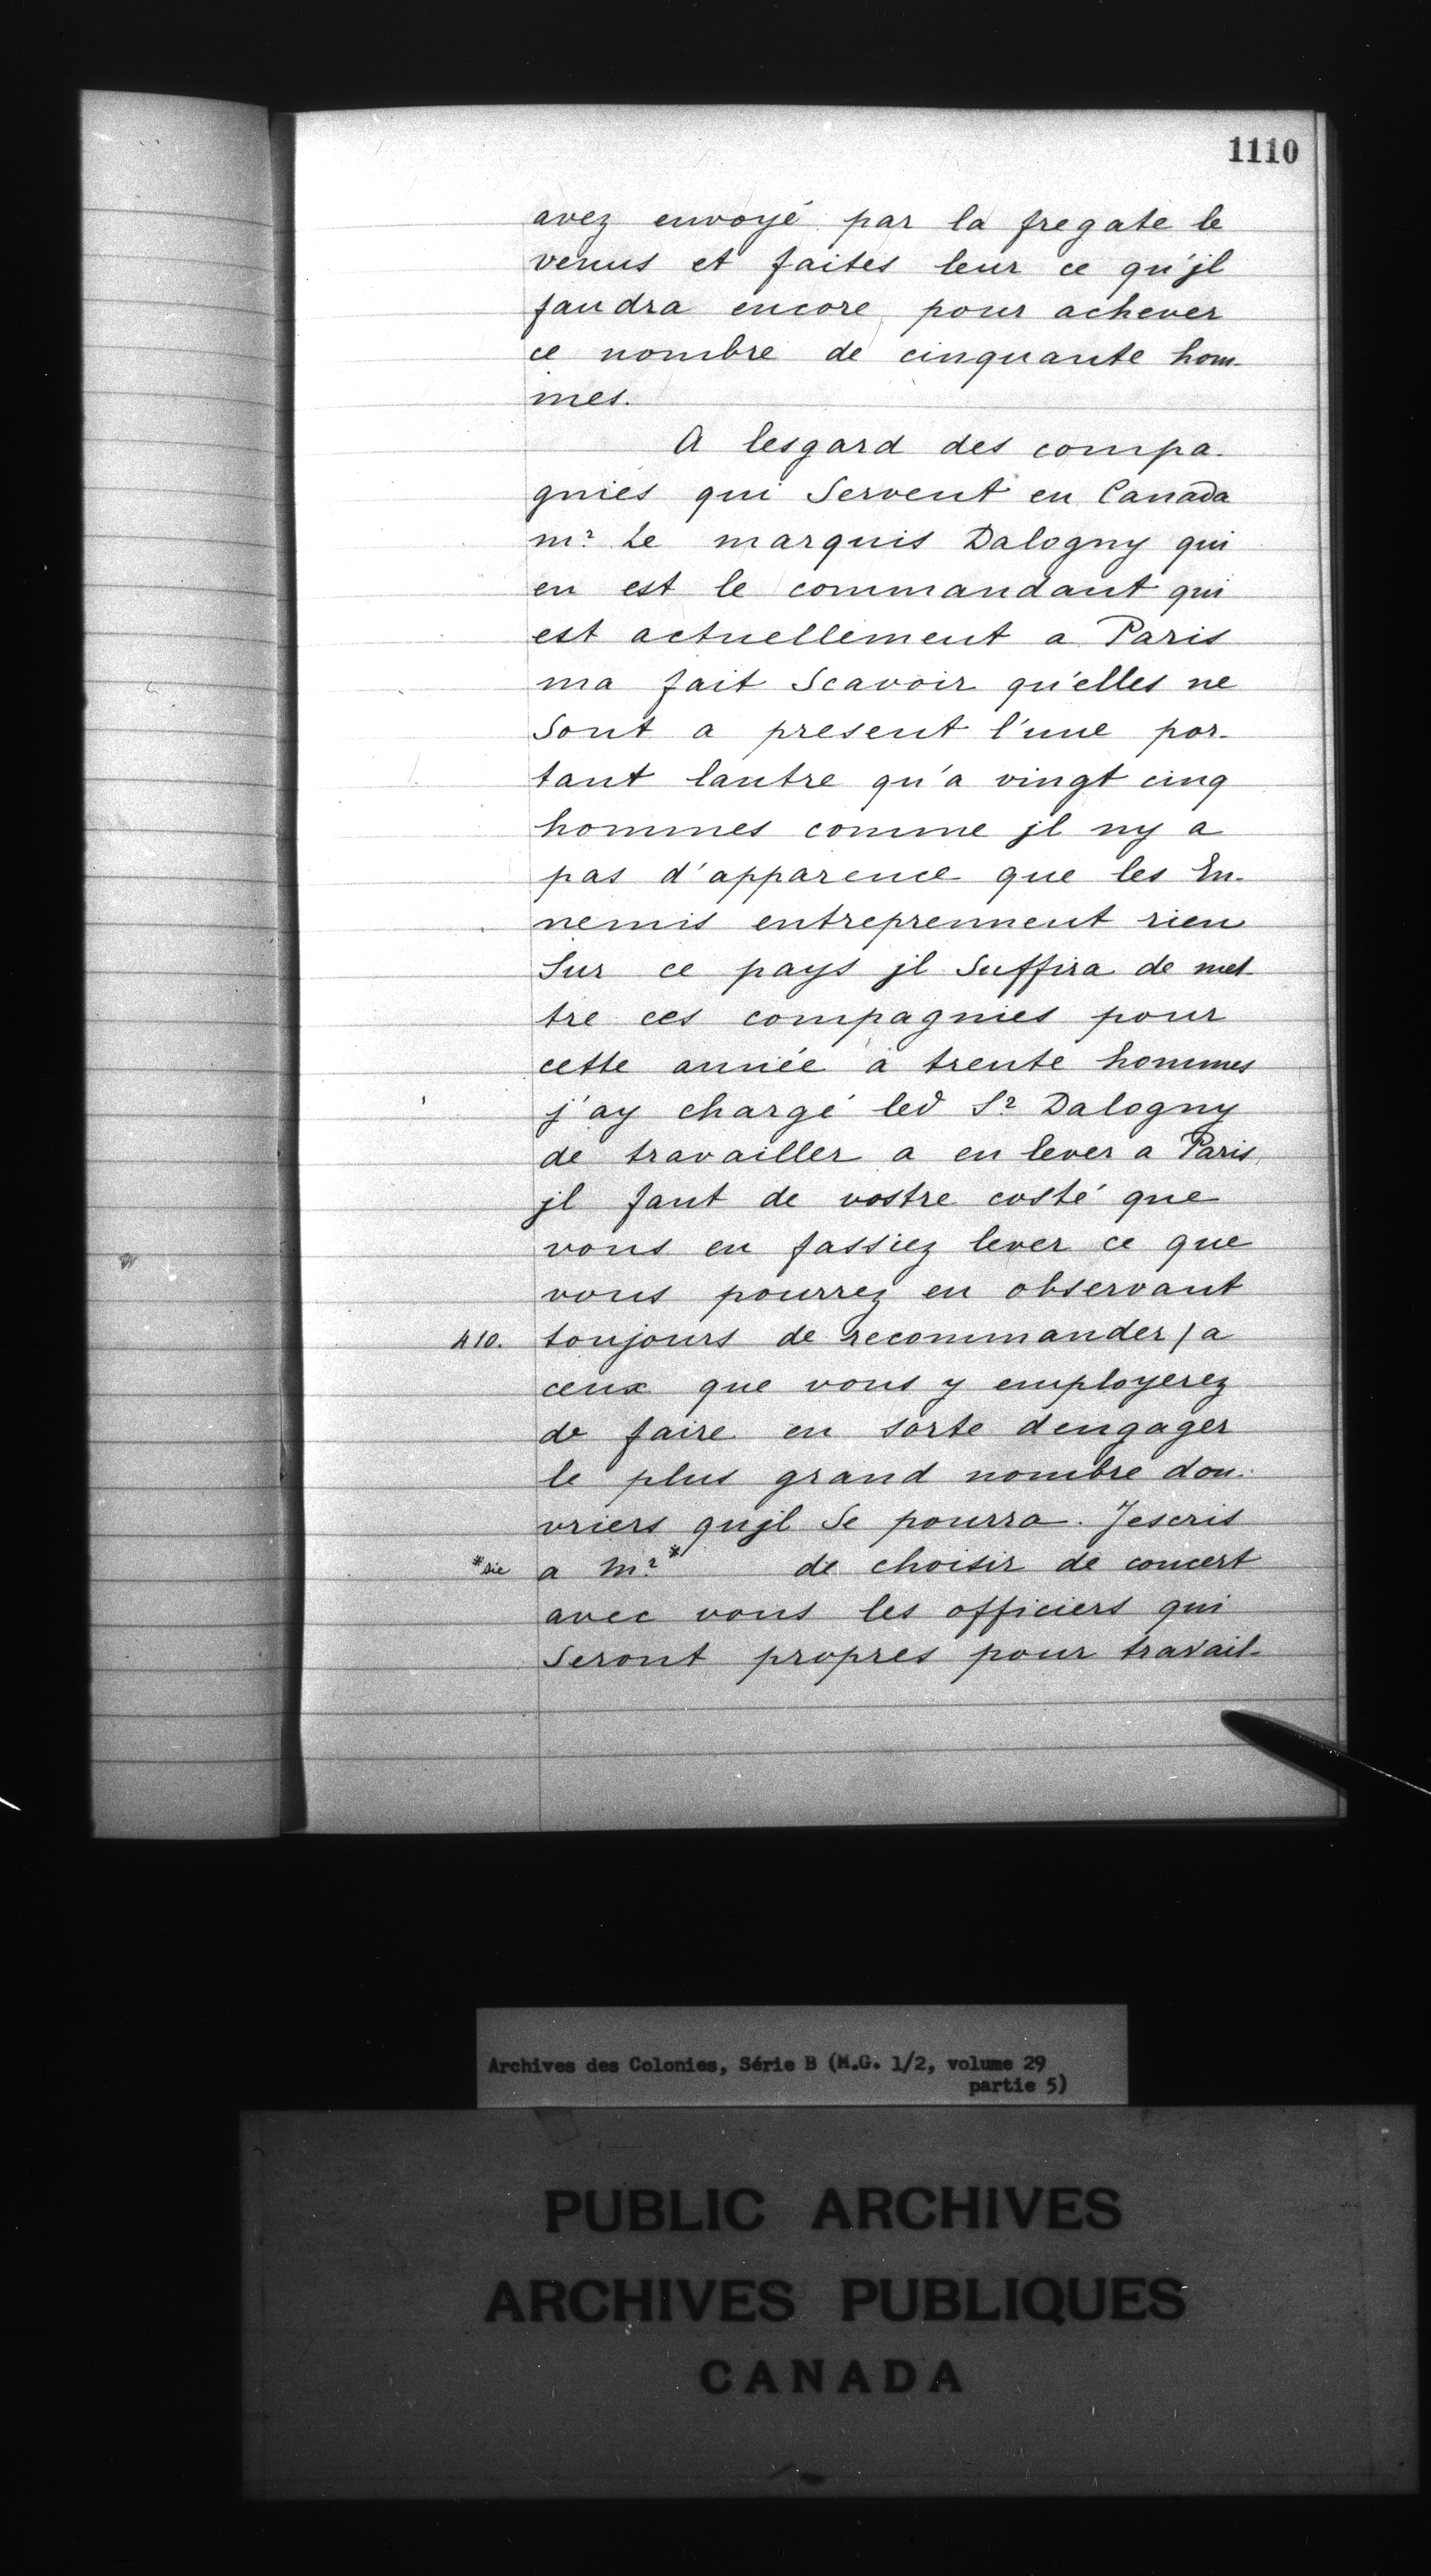 1110
avez envoyé par la fregate le
venus et faites leur ce qu'jl
faudra encore pour achever
ce nombre de cinquante hom-
mes.
A lesgard des compa-
gnies qui Servent en Canada
mr. Le marquis Dalogny qui
en est le commandant qui
est actuellement a Paris
ma fait Scavoir qu'elles ne
Sont a present l'une por-
tant lautre qu'a vingt cinq
hommes comme jl ny a
pas d'apparence que les En-
nemis entreprennent rien
Sur ce pays jl Suffira de met-
tre ces compagnies pour
cette année à trente hommes
j'ay chargé led Sr Dalogny
de travailler a en lever a Paris
jl faut de vostre costé que
vous en fassiez lever ce que
vous pourrez en observant
410. toujours de recommander / a
ceux que vous y employerez
de faire en sorte dengager
le plus grand nombre dou-
vriers qujl Se pourra. Jescris
*sic a Mr.* de choisir de concert
avec vous les officiers qui
Seront propres pour travail-
Archives des Colonies, Série B (M.G. 1/2, volume 29
partie 5)
PUBLIC ARCHIVES
ARCHIVES PUBLIQUES
CANADA